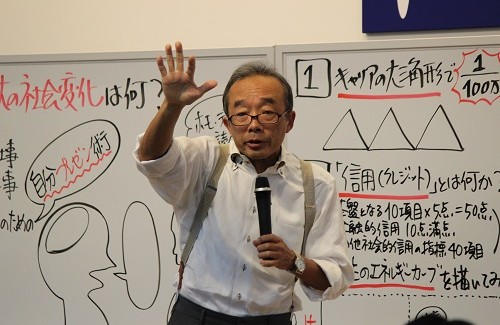 の社会変化は何?
自分プレゼン術
事
事
のための
1 キャリアの大三角形で
1/100万
「信用(クレジット)」とは何か?
盤となる10項目×5点=50点,
融的信用10点満点,
他社会的信用の指標40項目
のエネルギーカーブを描いてみ